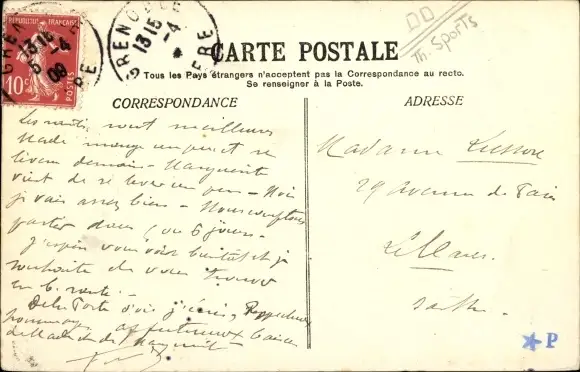 REPUBLIQUE FRANÇAISE
10c
POSTES
GRENOBLE
13 15
5-4
09
GRENOBLE
13 15
-4
ISERE
DD
Th. Sports
CARTE POSTALE
Tous les Pays étrangers n'acceptent pas la Correspondance au recto.
Se renseigner à la Poste.
CORRESPONDANCE
ADRESSE
Les santés sont meilleures
Made mange un peu et se
lèvera demain - Marguerite
vient de se lever un peu - Moi
je vais assez bien - Nous comptons
partir dans 5 ou 6 jours -
J'espère vous voir bientôt et je
souhaite de vous trouver
en b. santé -
De la d'où j'écris,
affectueux
de Mad et de Marguerite
Madame
29 avenue de Paris
Le Mans
Sarthe
P